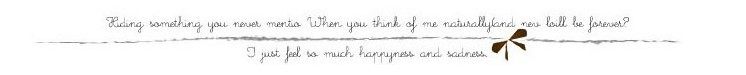 Hiding something you never mentio When you think of me naturally(and new loill be forever?
I just feel so much happyness and sadness.